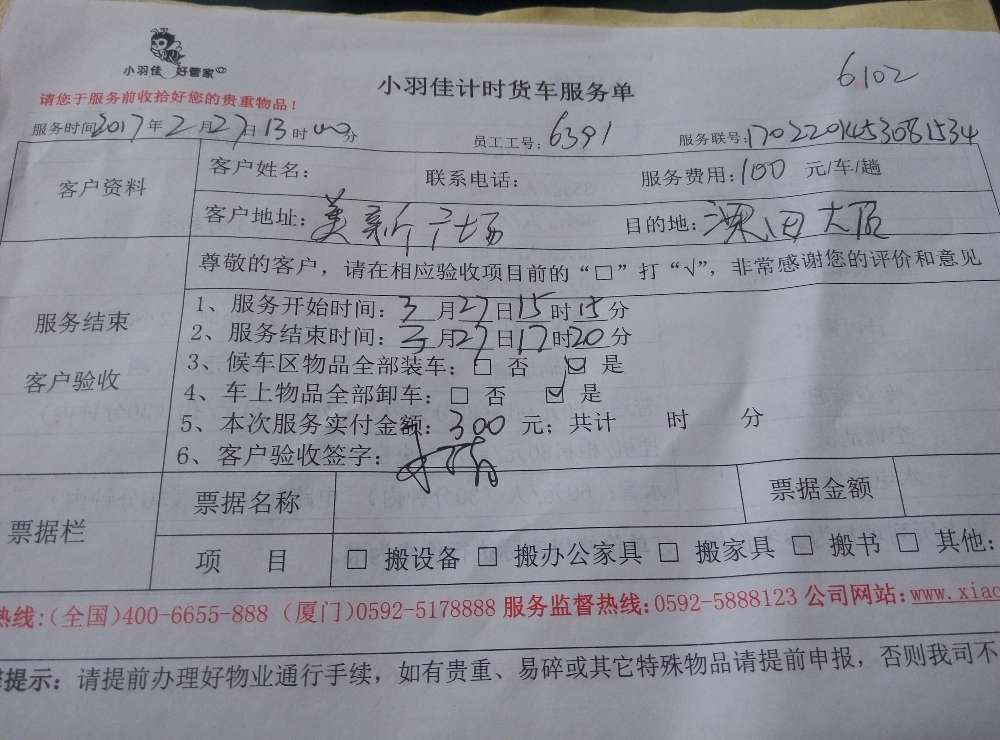 小羽佳 好管家
小羽佳计时货车服务单
6102
请您于服务前收拾好您的贵重物品！
服务时间2017年2月27日13时00分 员工工号：6391 服务联号：1702201453081534
客户资料
客户姓名： 联系电话： 服务费用：100 元/车/趟
客户地址：美新广场 目的地： 大厦
尊敬的客户，请在相应验收项目前的“□”打“√”，非常感谢您的评价和意见
服务结束
客户验收
1、服务开始时间：2月27日15时15分
2、服务结束时间：2月27日17时20分
3、候车区物品全部装车：□ 否 ☑ 是
4、车上物品全部卸车：□ 否 ☑ 是
5、本次服务实付金额：300 元；共计 时 分
6、客户验收签字：
票据栏
票据名称 票据金额
项 目 □ 搬设备 □ 搬办公家具 □ 搬家具 □ 搬书 □ 其他：
热线：(全国)400-6655-888 (厦门)0592-5178888 服务监督热线：0592-5888123 公司网站：www.xiao
提示：请提前办理好物业通行手续，如有贵重、易碎或其它特殊物品请提前申报，否则我司不